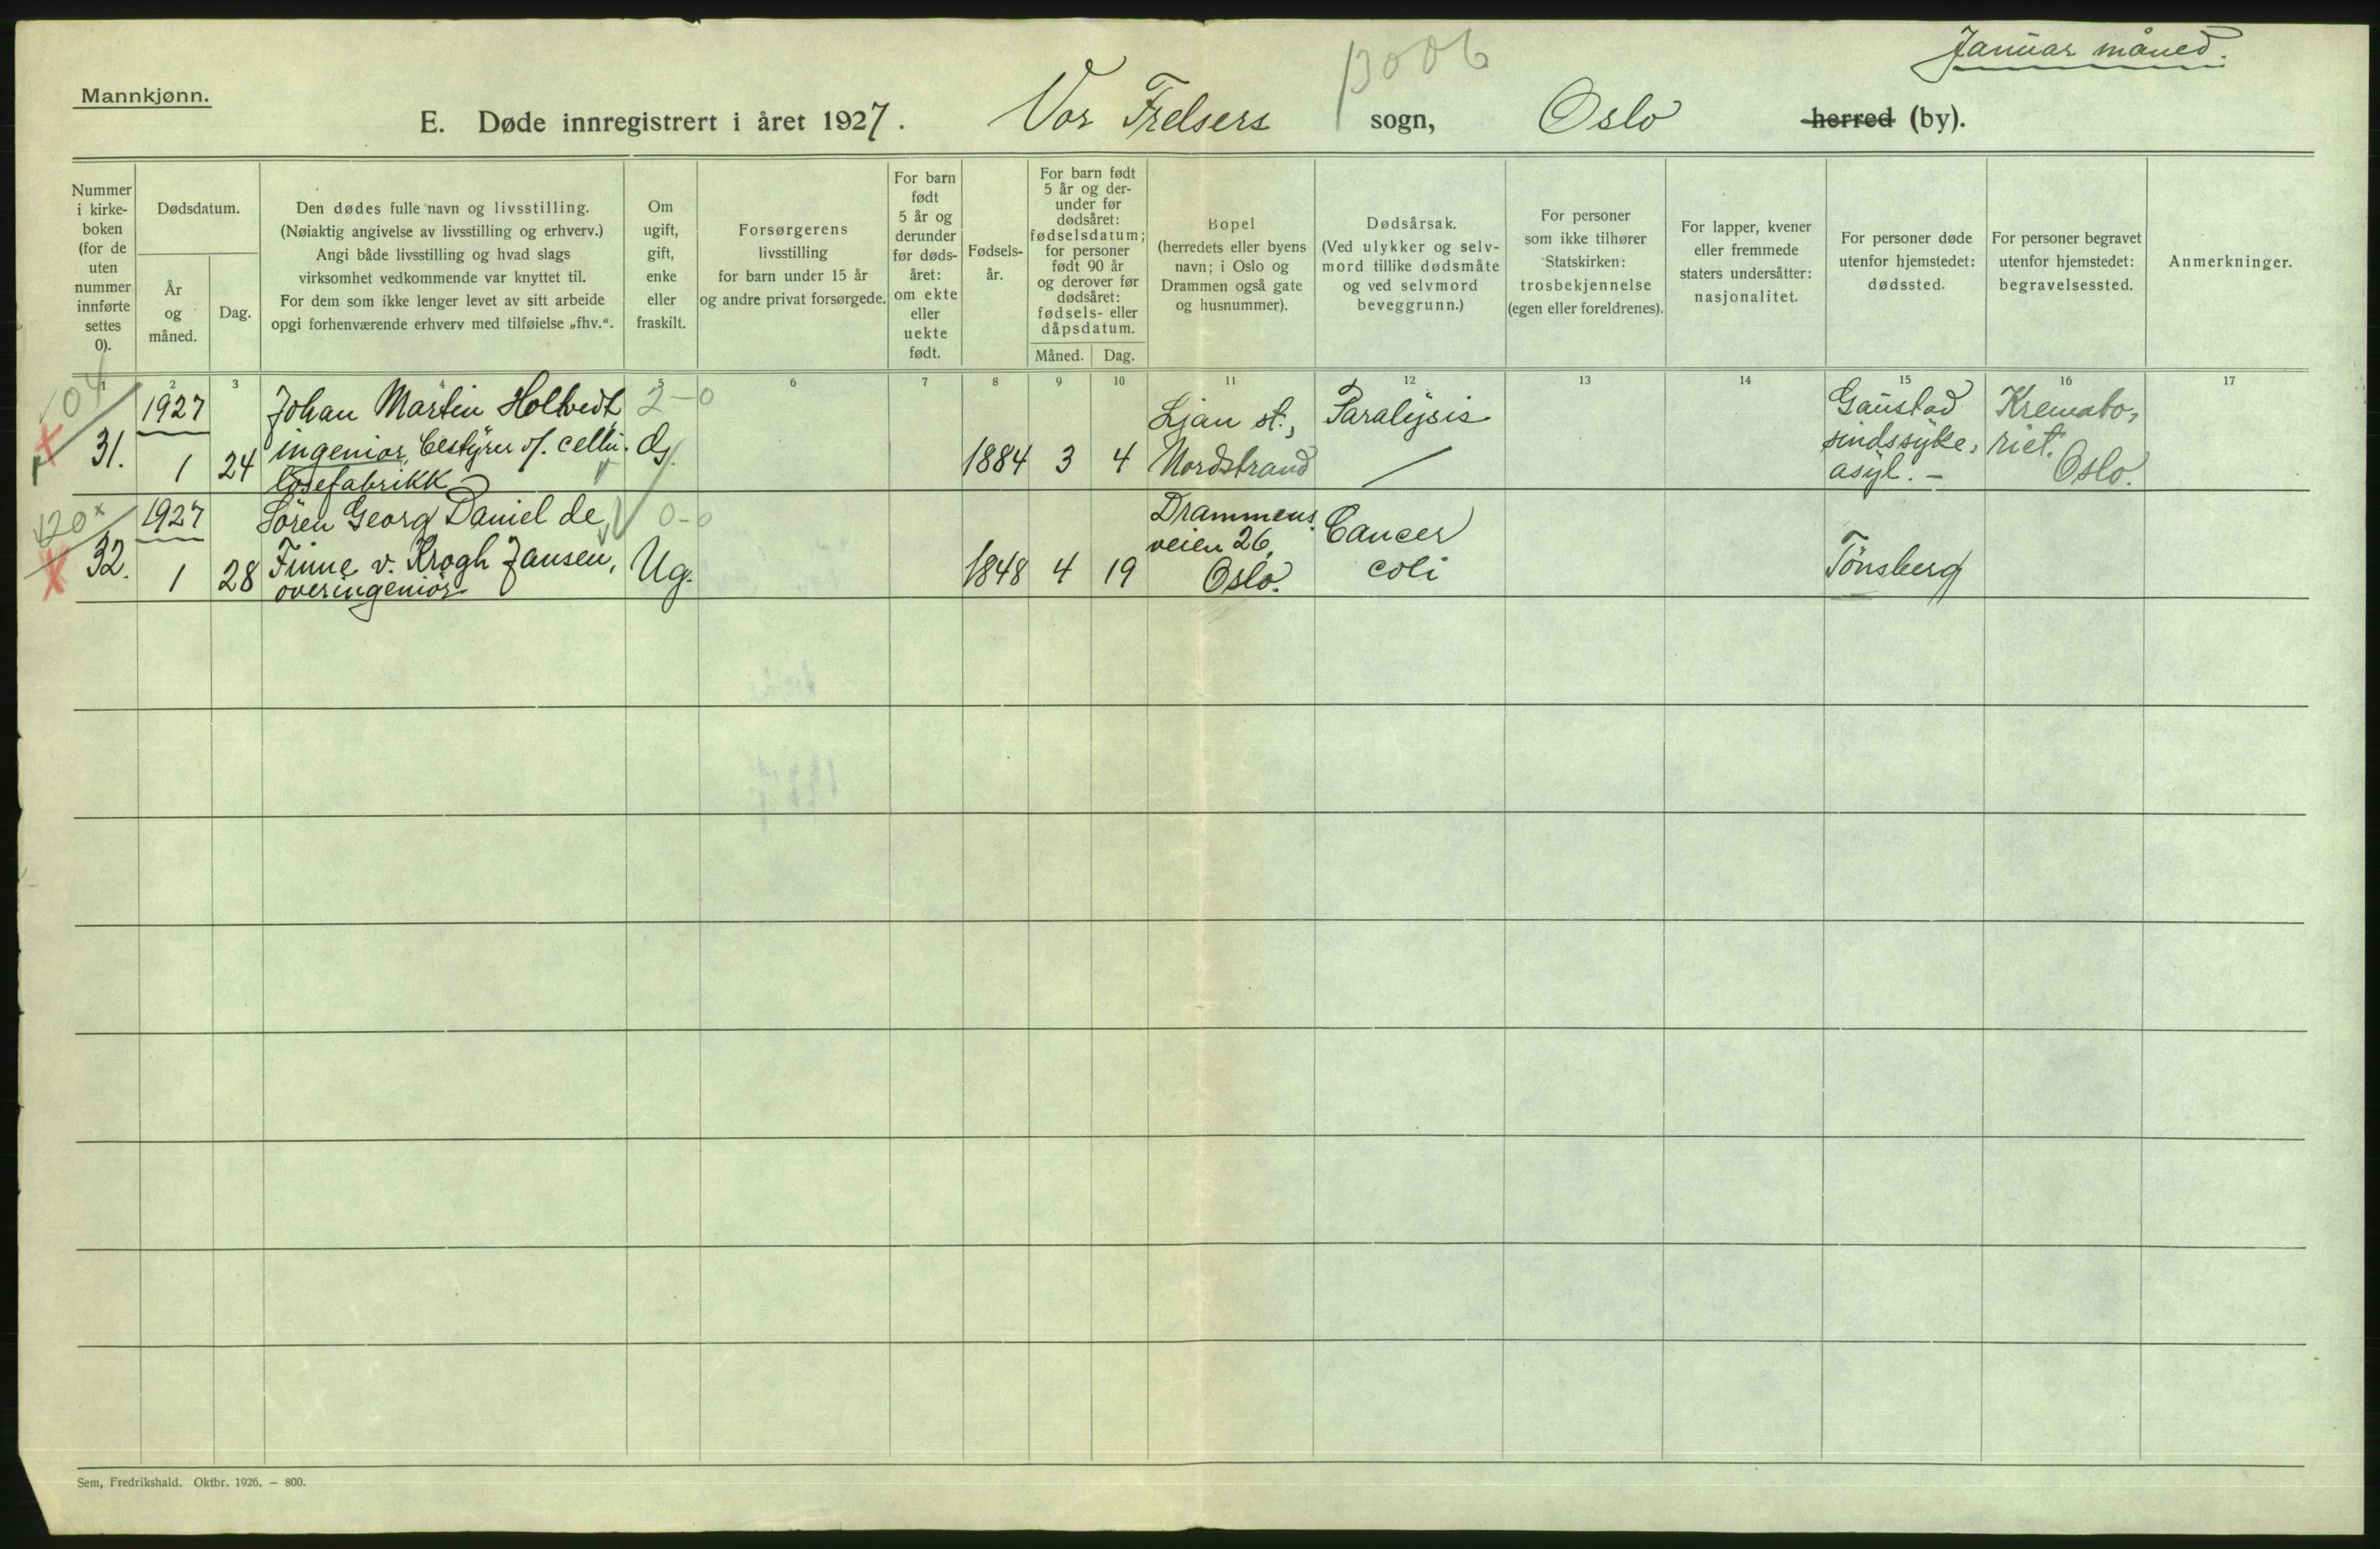 Januar måned.
13006
Mannkjønn.
E. Døde innregistrert i året 1927. Vor Frelsers sogn, Oslo herred (by).
Nummer
i kirke-
boken
(for de
uten
nummer
innførte
settes
0).
Dødsdatum.
År
og
måned.
Dag.
Den dødes fulle navn og livsstilling.
(Nøiaktig angivelse av livsstilling og erhverv.)
Angi både livsstilling og hvad slags
virksomhet vedkommende var knyttet til.
For dem som ikke lenger levet av sitt arbeide
opgi forhenværende erhverv med tilføielse „fhv.“.
Om
ugift,
gift,
enke
eller
fraskilt.
Forsørgerens
livsstilling
for barn under 15 år
og andre privat forsørgede.
For barn
født
5 år og
derunder
før døds-
året:
om ekte
eller
uekte
født.
Fødsels-
år.
For barn født
5 år og der-
under før
dødsåret:
fødselsdatum;
for personer
født 90 år
og derover før
dødsåret:
fødsels- eller
dåpsdatum.
Måned.
Dag.
Bopel
(herredets eller byens
navn; i Oslo og
Drammen også gate
og husnummer).
Dødsårsak.
(Ved ulykker og selv-
mord tillike dødsmåte
og ved selvmord
beveggrunn.)
For personer
som ikke tilhører
Statskirken:
trosbekjennelse
(egen eller foreldrenes).
For lapper, kvener
eller fremmede
staters undersåtter:
nasjonalitet.
For personer døde
utenfor hjemstedet:
dødssted.
For personer begravet
utenfor hjemstedet:
begravelsessted.
Anmerkninger.
1 2 3 4 5 6 7 8 9 10 11 12 13 14 15 16 17
104
31.
1927
1
24
Johan Martin Holtvedt,
ingeniør, bestyrer v/. cellu-
losefabrikk
2-0
1884
3
4
Ljan st.,
Nordstrand
Paralysis
Gaustad
sindssyke-
asyl. -
Kremato-
riet.
Oslo.
120 x
32.
1927
1
28
Sören Georg Daniel de
Finne v. Krogh Jansen,
overingeniör
0-0
Ug.
1848
4
19
Drammens-
veien 26,
Oslo.
Cancer
coli
Tönsberg
Sem, Fredrikshald. Oktbr. 1926. — 800.